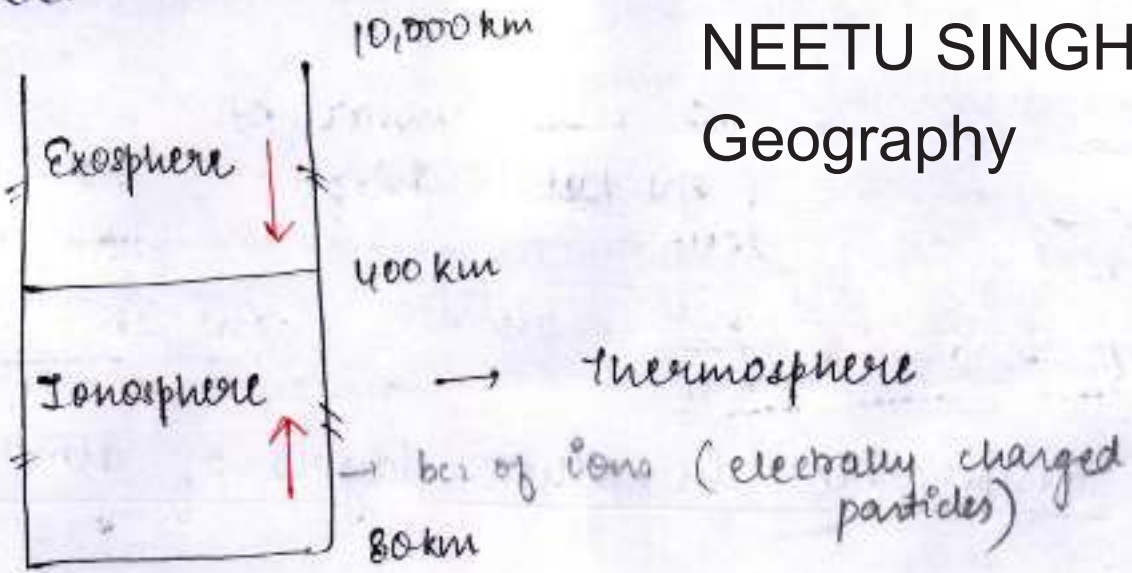 10,000 km
NEETU SINGH
Geography
Exosphere
400 km
Ionosphere → Thermosphere
→ bcz of ions (electrally charged
particles)
80 km